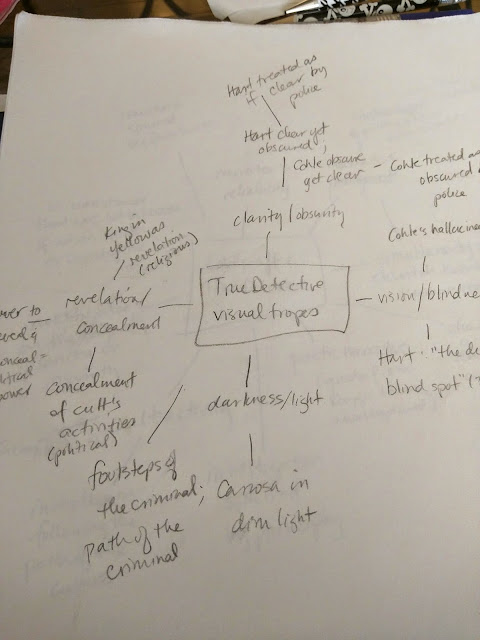 Hart treated as
if clear by
police
Hart clear yet
obscured;
Cohle obscure
yet clear
Cohle treated as
obscured
police
clarity/obsurity
King in
Yellow as
revelation
(religious)
Cohle's hallucin
True Detective
visual tropes
revelation/
concealment
vision/blindne
wer to
conceal =
power
concealment
of cult's
activities
(political)
Hart: "the de
blind spot" (
darkness/light
footsteps of
the criminal;
path of the
criminal
Carcosa in
dim light